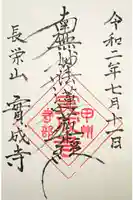 令和二年七月十二日
南無妙法蓮華経
長栄山 實成寺
甲州